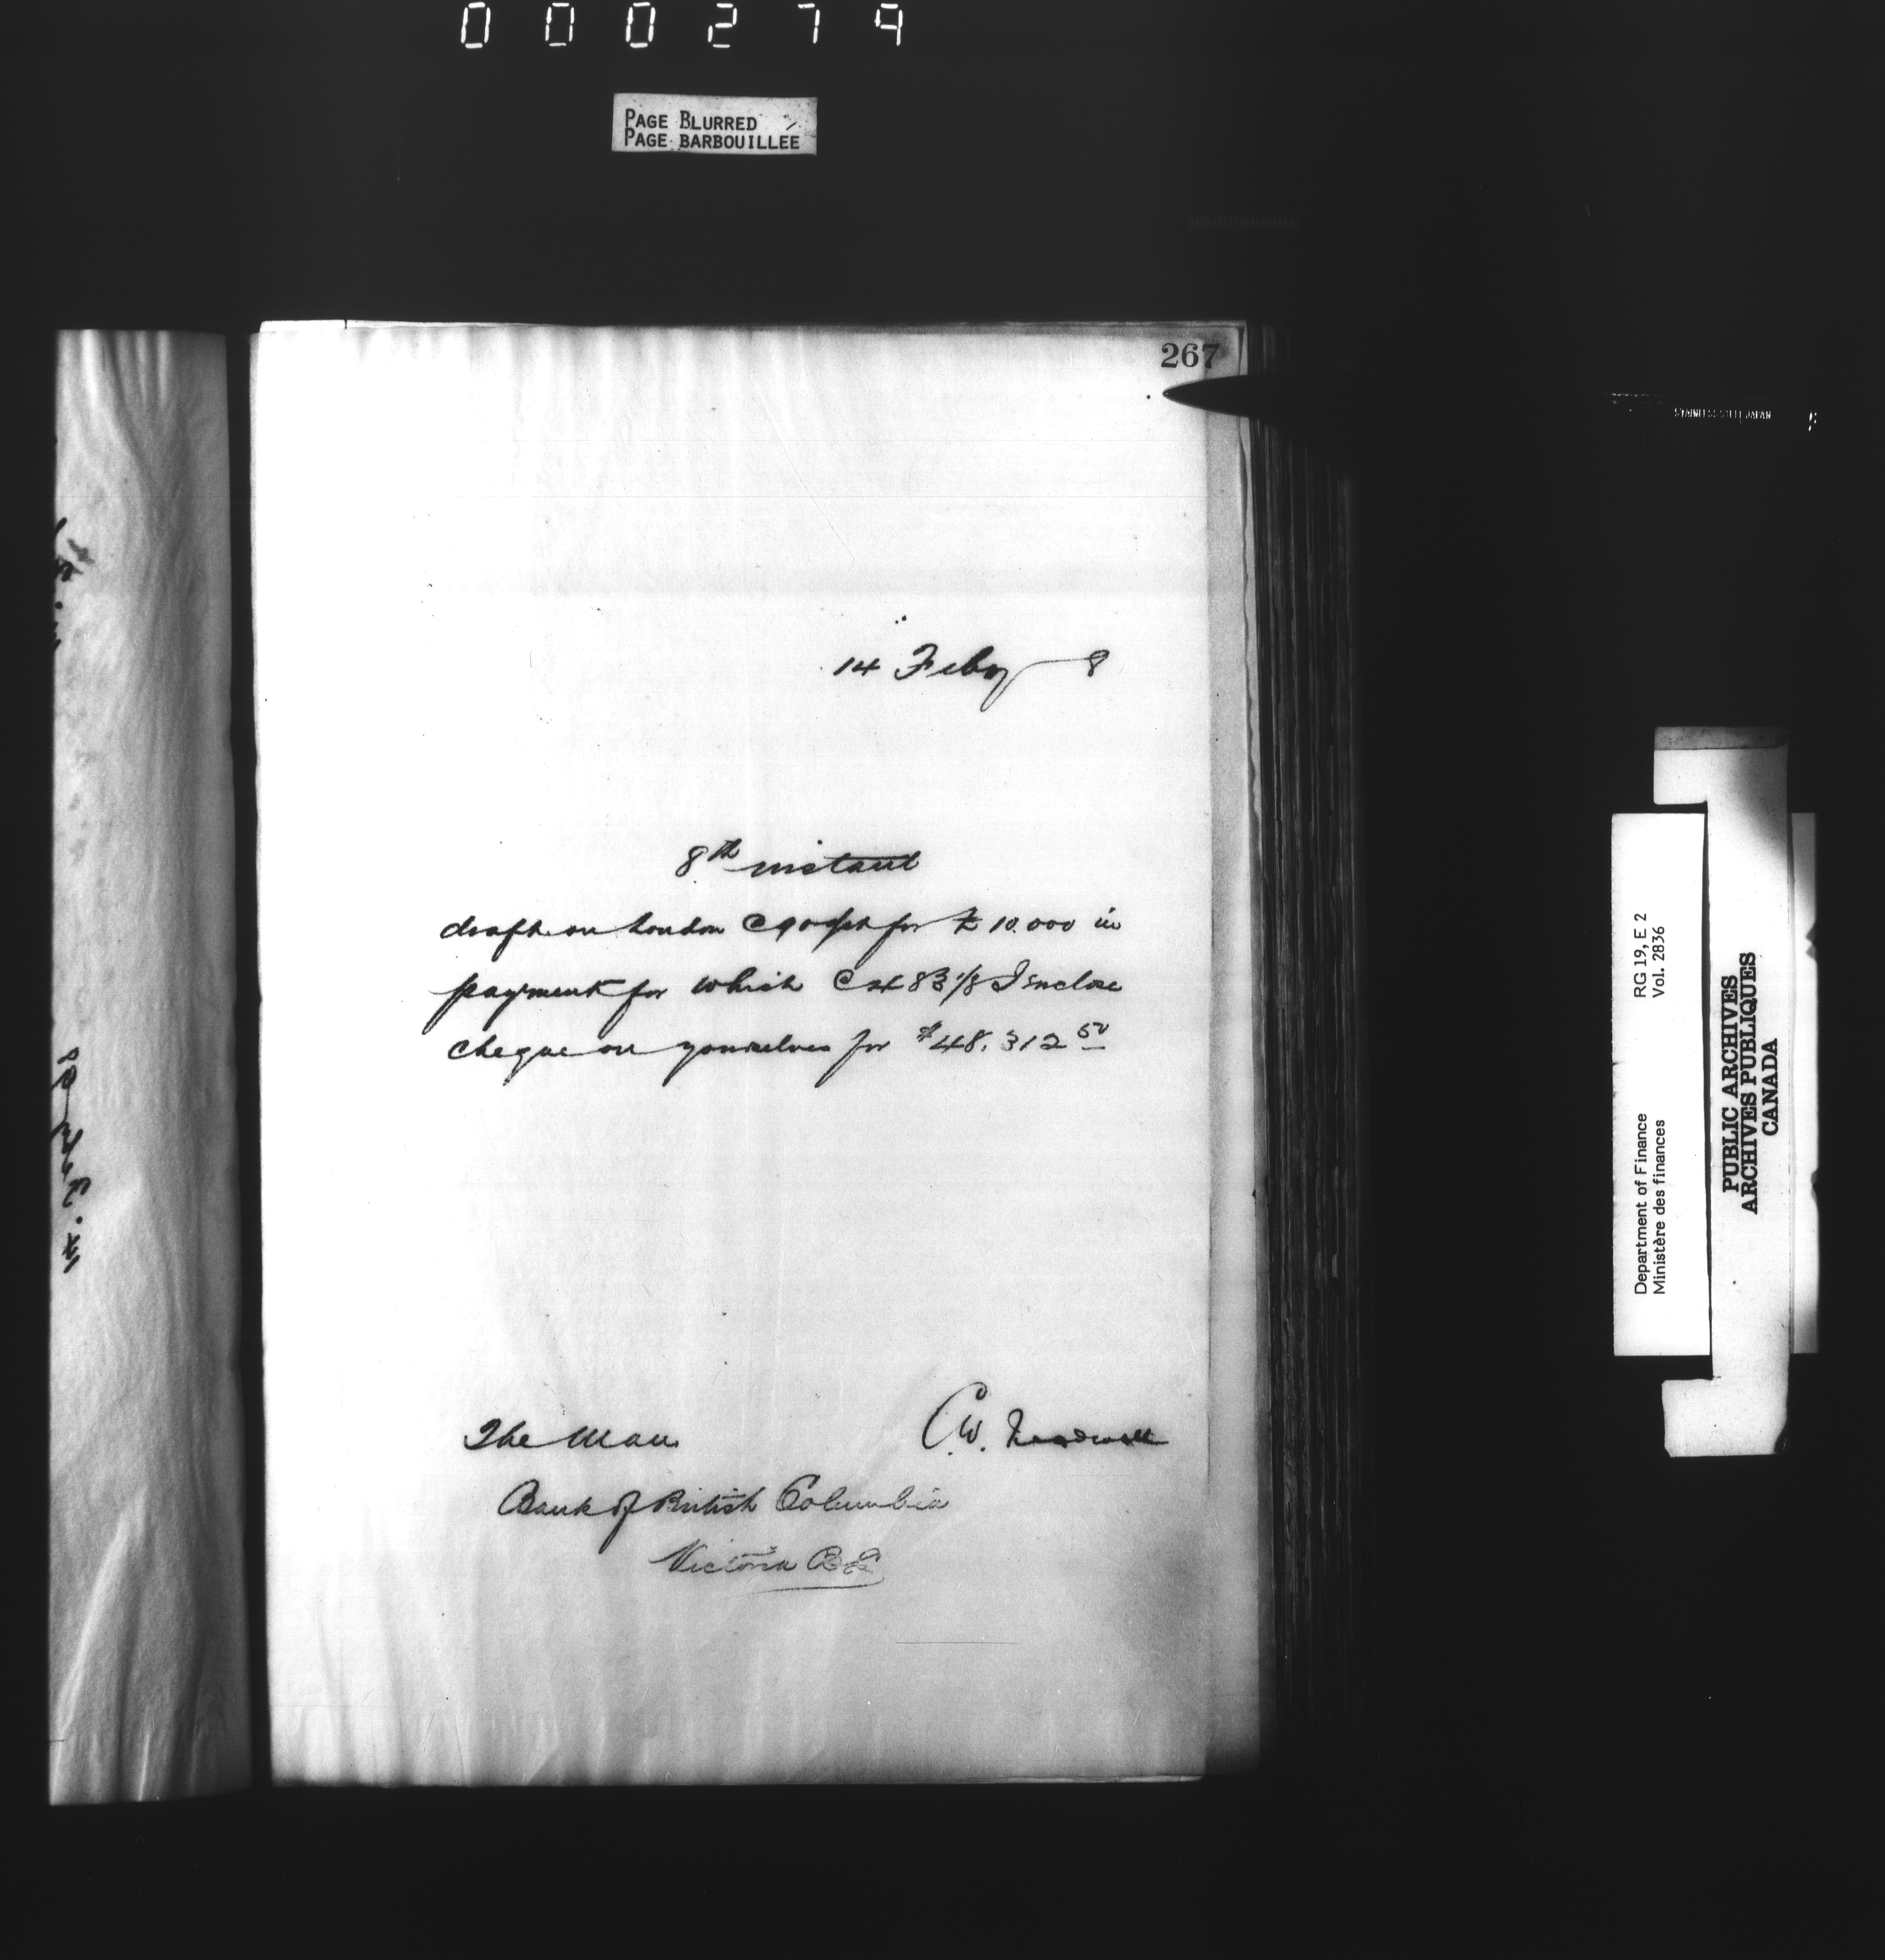 000279
PAGE BLURRED
PAGE BARBOUILLÉE
267
14 Feby 8
8th instant
draft on London @ 90 for £10.000 in
payment for which @ 83 1/8 I enclose
cheque on yourselves for $48,312 50
The Man
C.W.
Bank of British Columbia
Victoria BC
STAINLESS STEEL JAPAN
Department of Finance RG 19, E 2
Ministère des finances Vol. 2836
PUBLIC ARCHIVES
ARCHIVES PUBLIQUES
CANADA
14. Feby 98